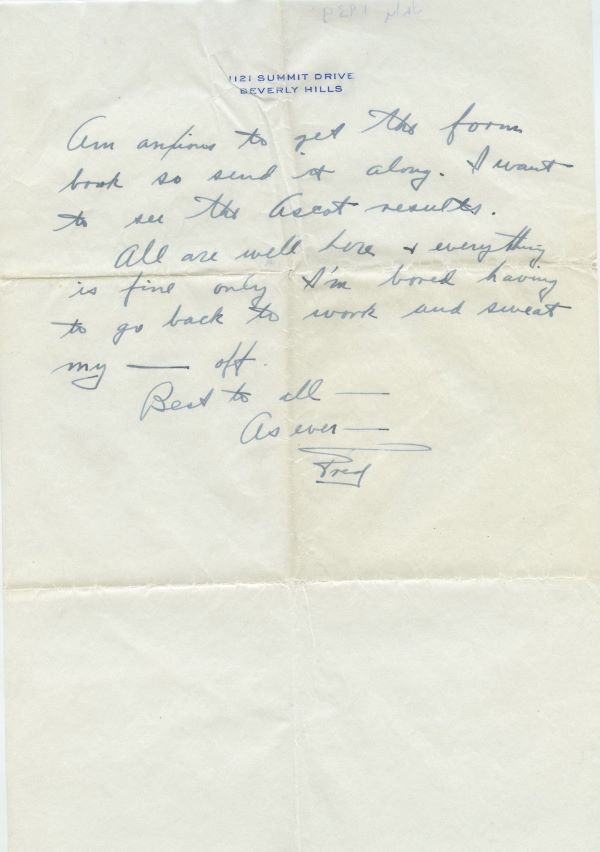 1121 SUMMIT DRIVE
BEVERLY HILLS
Am anxious to get the form
book so send it along. I want
to see the Ascot results.
All are well here & everything
is fine only I'm bored having
to go back to work and sweat
my — off.
Best to all —
As ever —
Fred